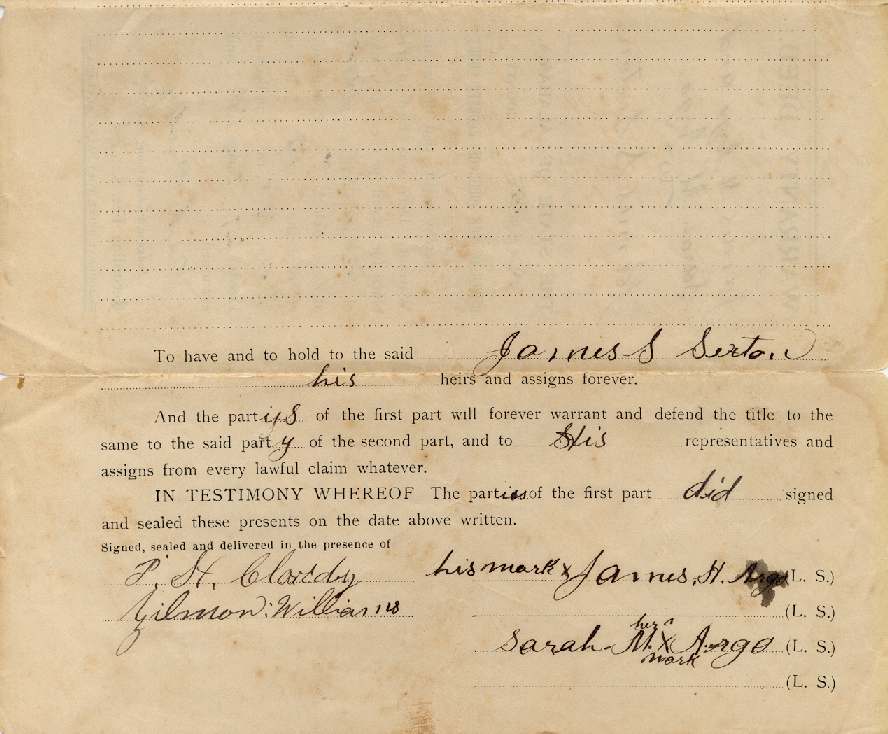 To have and to hold to the said James S Serton
his heirs and assigns forever.
And the partys of the first part will forever warrant and defend the title to the
same to the said party of the second part, and to His representatives and
assigns from every lawful claim whatever.
IN TESTIMONY WHEREOF The parties of the first part did signed
and sealed these presents on the date above written.
Signed, sealed and delivered in the presence of
P. H. Clardy his mark x James, H. Argo (L. S.)
Williams (L. S.)
Sarah M. her x mark Argo (L. S.)
(L. S.)